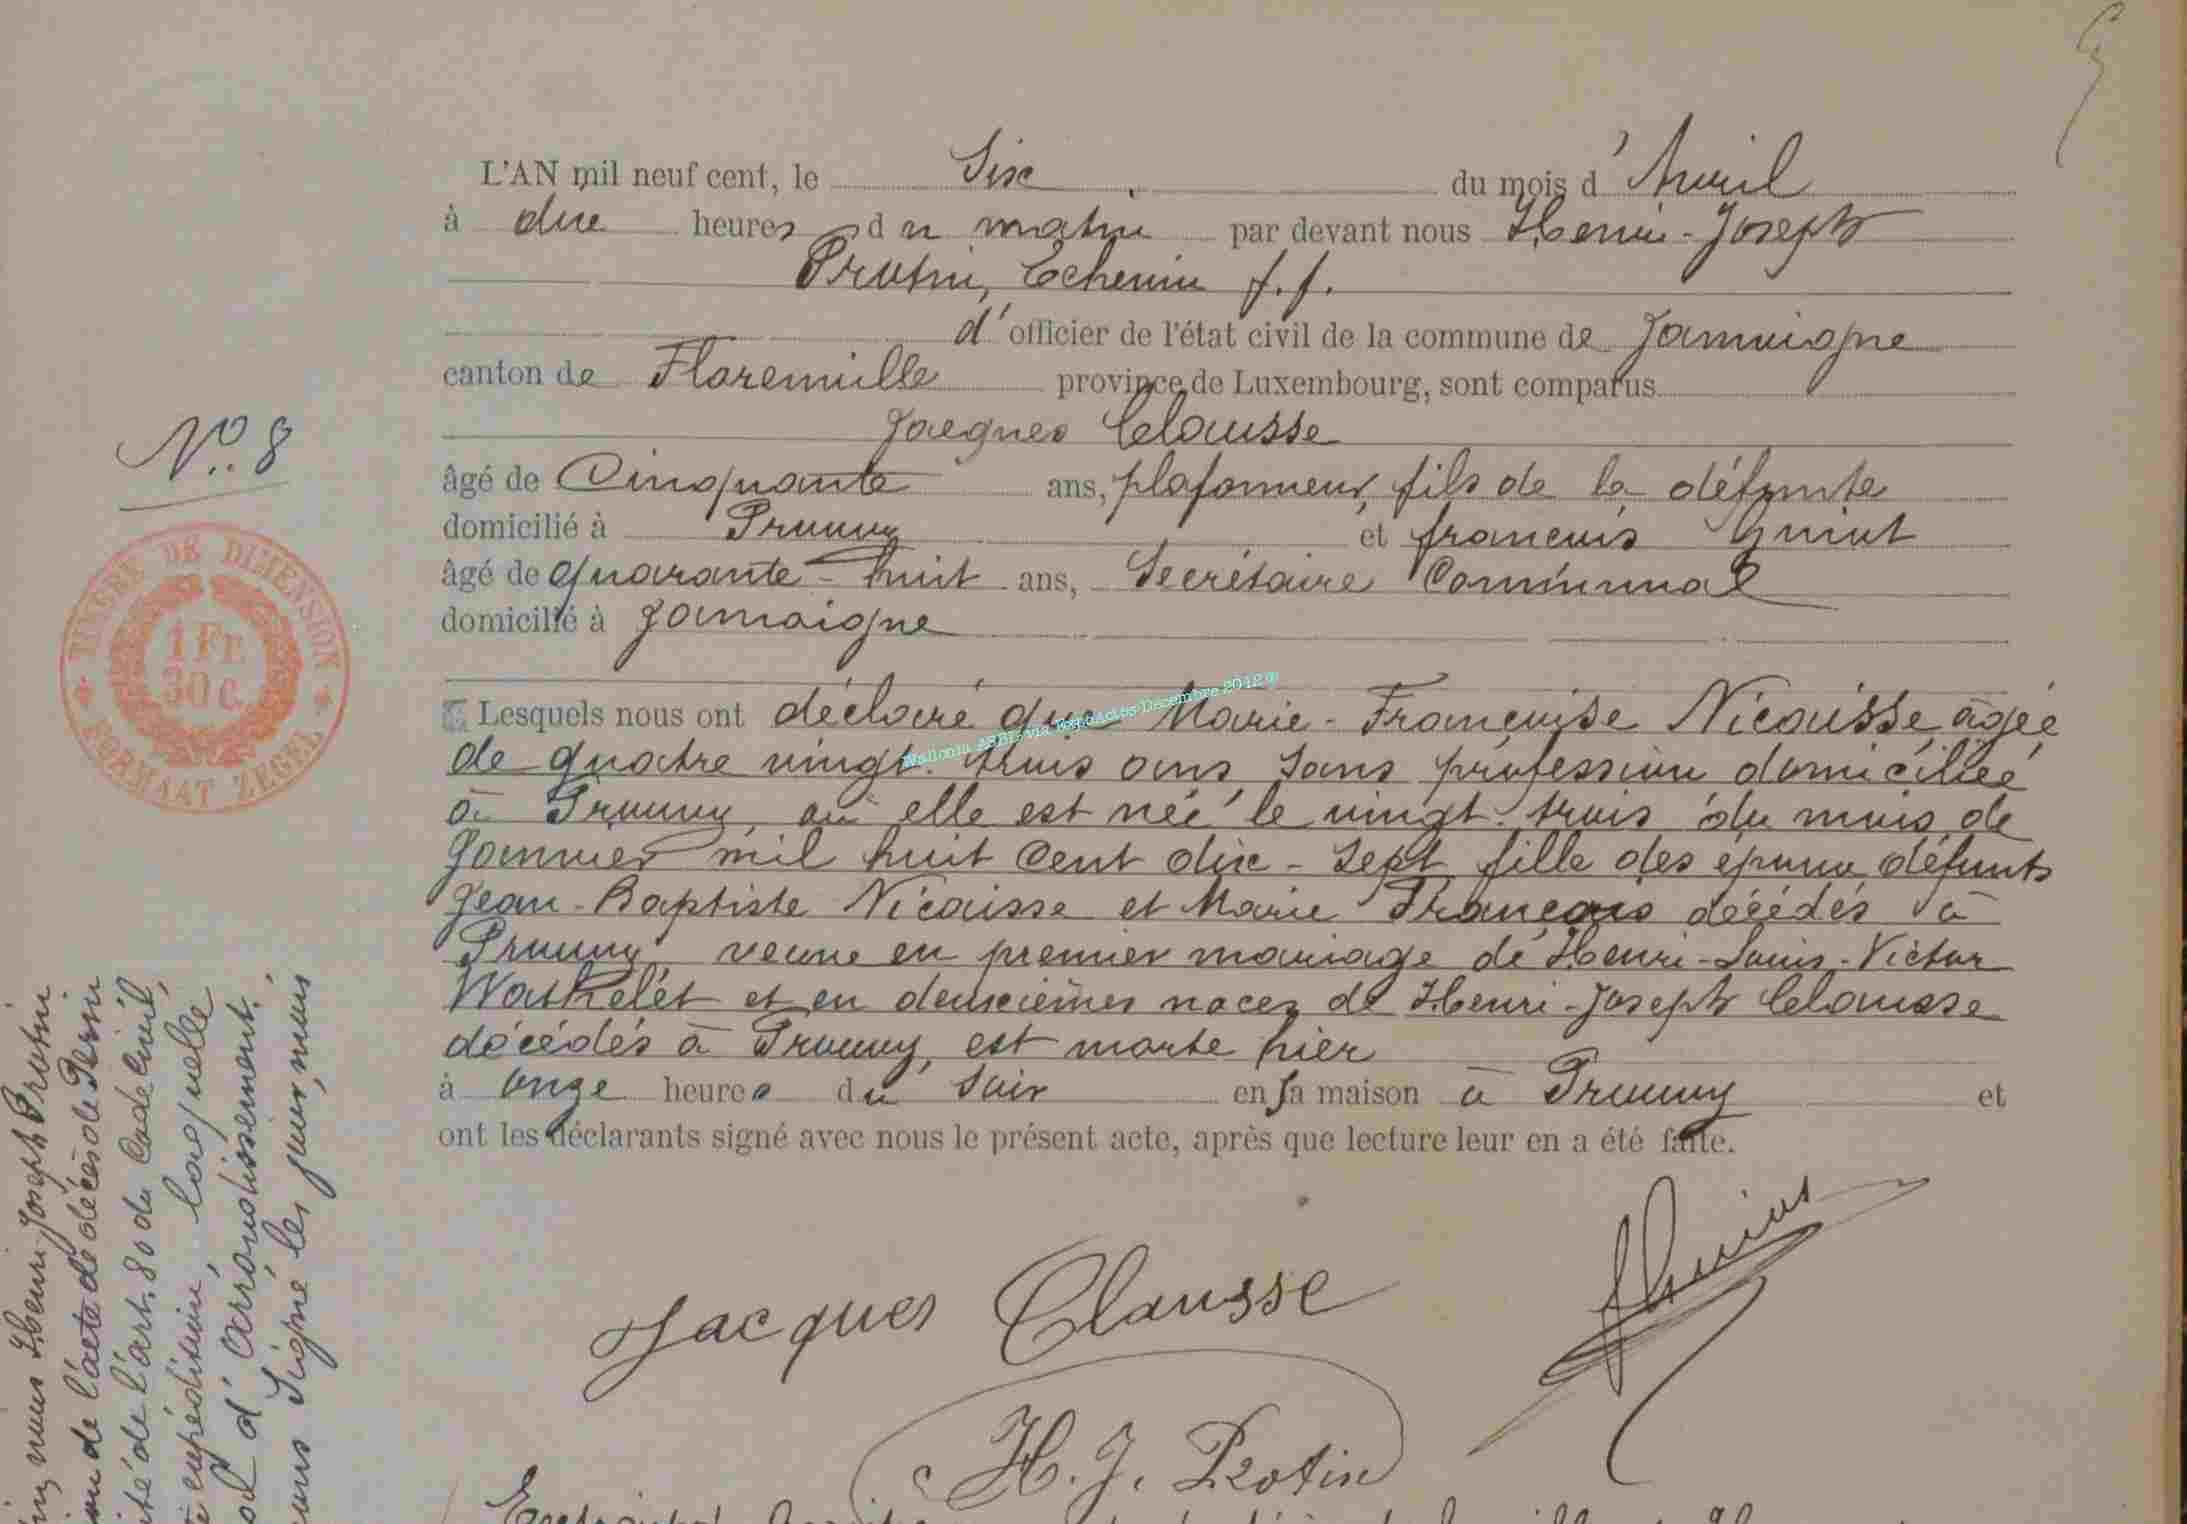 L'AN mil neuf cent, le Six du mois d'Avril
à dix heures du matin par devant nous Henri-Joseph
Protin, Echevin f.f.
d'officier de l'état civil de la commune de Jamoigne
canton de Florenville province de Luxembourg, sont comparus
Jacques Clausse
N° 8
âgé de Cinquante ans, plafonneur, fils de la défunte
domicilié à Prouvy et françois
âgé de quarante-huit ans, Secrétaire Communal
domicilié à Jamoigne
TIMBRE DE DIMENSION
1 Fr.
30 c.
FORMAAT ZEGEL
Lesquels nous ont déclaré que Marie-Françoise Nicaisse âgée
Wallonia ASBL via ExpoActes Décembre 2012 ©
de quatre vingt-trois ans, sans profession domiciliée
à Prouvy, où elle est née le vingt-trois du mois de
Janvier mil huit cent dix-sept, fille des époux défunts
Jean-Baptiste Nicaisse et Marie François décédés à
Prouvy, veuve en premier mariage de Henri-Louis-Victor
Wathelet et en deuxièmes noces de Henri-Joseph Clausse
décédés à Prouvy, est morte hier
à onze heures du soir en sa maison à Prouvy et
ont les déclarants signé avec nous le présent acte, après que lecture leur en a été faite.
Jacques Clausse
H. J. Protin
nous Henri-Joseph Protin
de l'acte de décès de
de l'art. 80 du Code Civil,
expédition, laquelle
d'arrondissement.
Signé les jour, mois